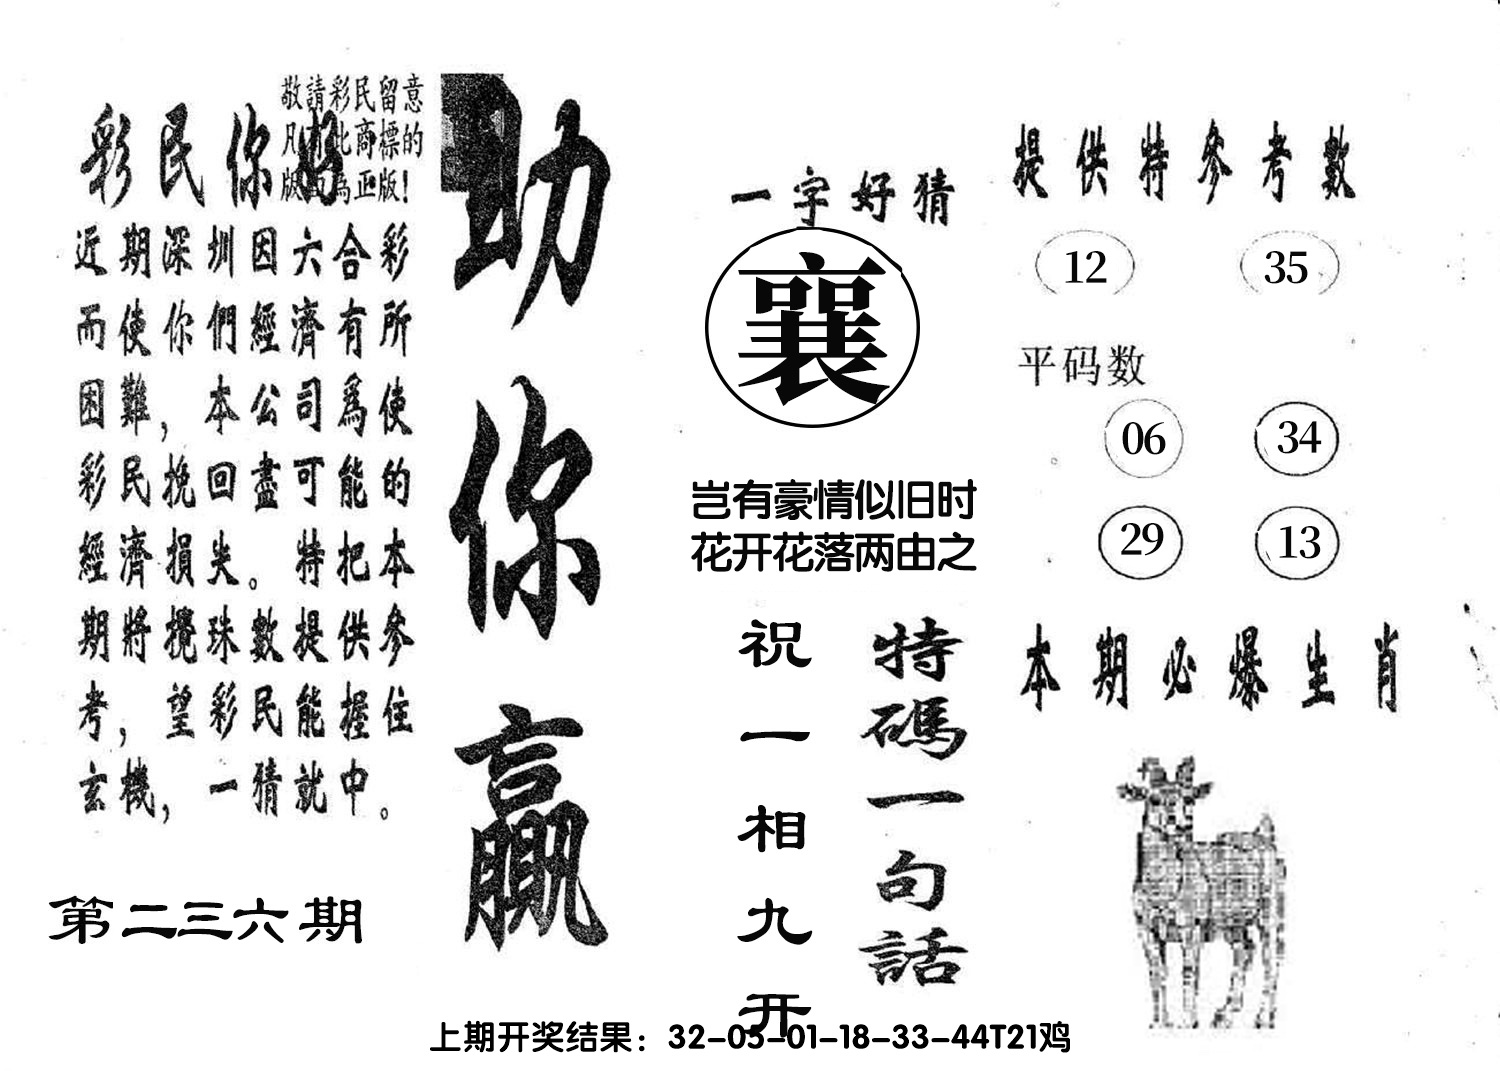 敬請彩民留意
凡有此商標的
版面為正版！
彩民你好
近期深圳因六合彩
而使你們經濟有所
困難，本公司爲使
彩民挽回盡可能的
經濟損失。特把本
期將攪珠數提供參
考，望彩民能握住
玄機，一猜就中。
第二三六期
助你贏
一字好猜
襄
岂有豪情似旧时
花开花落两由之
特碼一句話
祝一相九开
提供特參考數
12 35
平码数
06 34
29 13
本期必爆生肖
上期开奖结果：32-05-01-18-33-44T21鸡